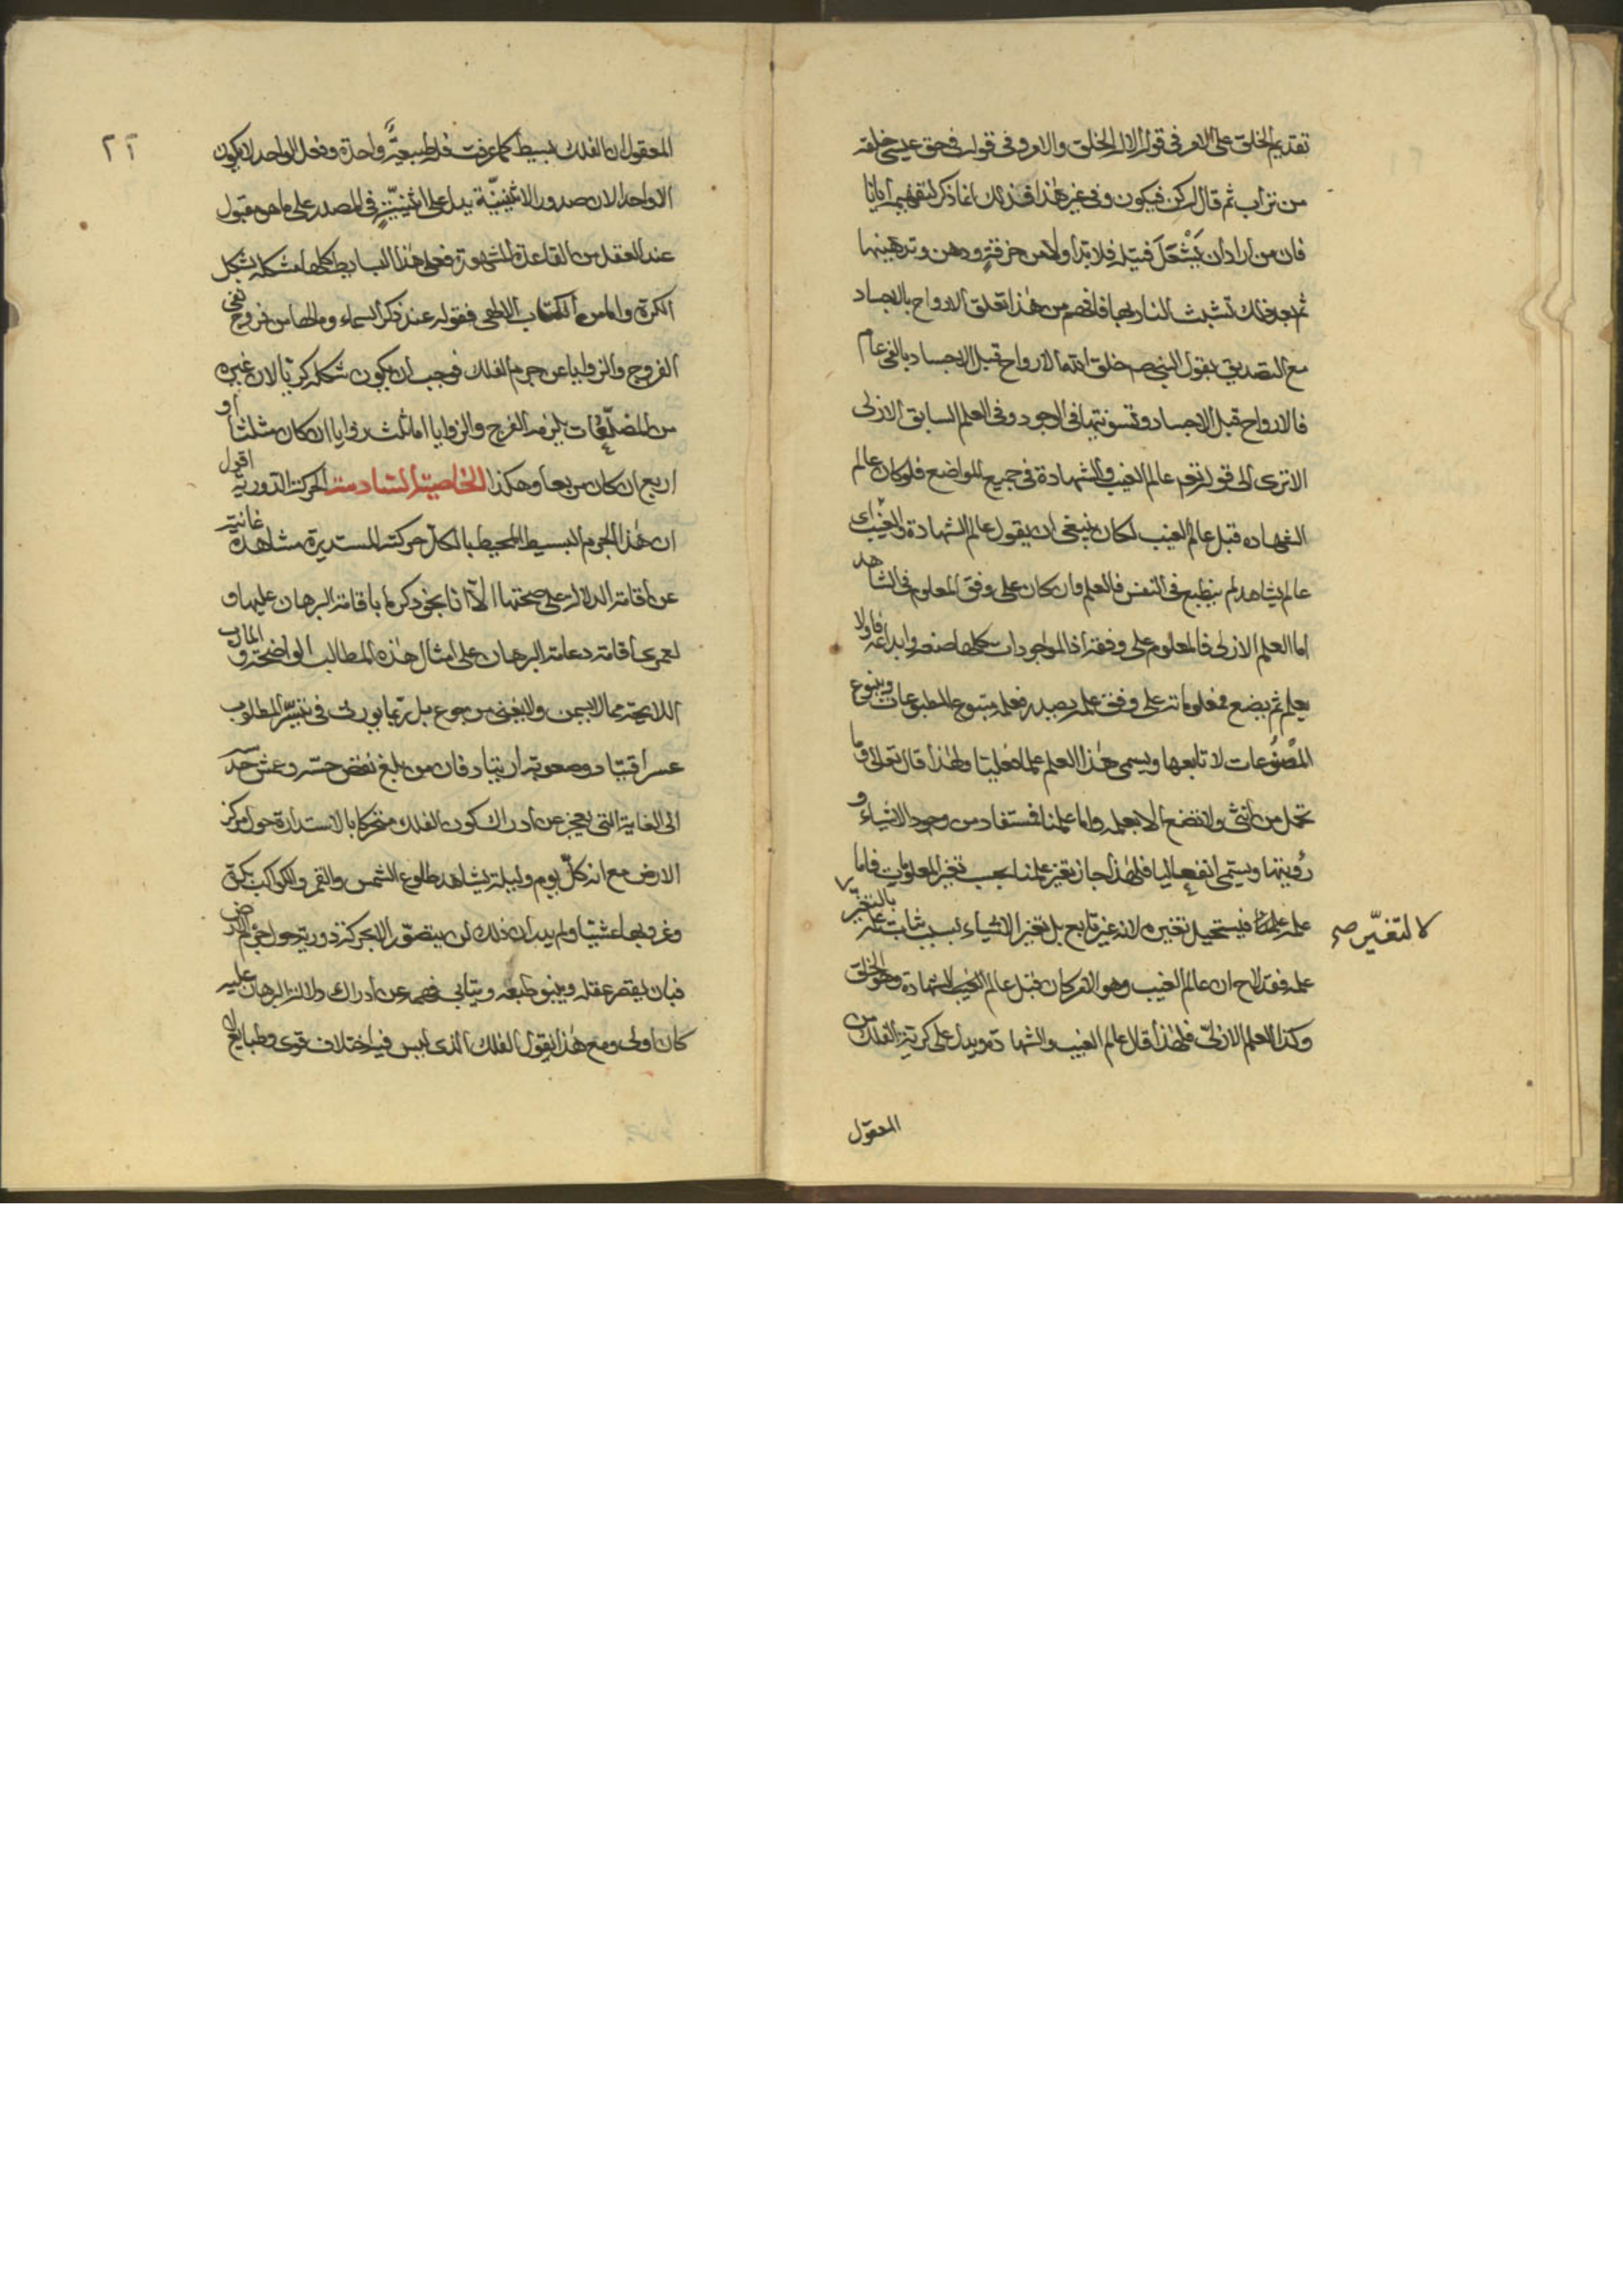 تقديم الخلق على الامر فى قوله الا له الخلق والامر وفى قوله فى حق عيسى خلقه
من تراب ثم قال له كن فيكون وفى غير هذا فذلك انما ذكر لتفهيم ايانا
فان من اراد ان يَشْعَلَ فتيلة فلا بد اولا من خرقةٍ ودهن وتدهينها
ثم بعد ذلك تشبث النار بها فافهم من هذا تعلق الارواح بالاجساد
مع التصديق بقول النبى صم خلق الله الارواح قبل الاجساد بالفى عام
فالارواح قبل الاجساد وتسويتها فى الوجود وفى العلم السابق الازلى
الا ترى الى قوله تعم عالم الغيب والشهادة فى جميع المواضع فلو كان عالم
الشهاده قبل عالم الغيب لكان ينبغى ان يقول عالم الشهادة والغيب اى
عالم يشاهد لم ينطبع فى النفس فالعلم وان كان على وفق المعلوم فى الشاهد
اما العلم الازلى فالمعلوم على وفقه اذ الموجودات كلها صنعه وابداعه فاولا
يعلم ثم يضع فمعلوماته على وفق علمه يصدر فعلمه متبوع المطبوعات وينبوع
المصنُوعات لا تابعها ويسمى هذا العلم علما فعليّا ولهذا قال تعالى وما
تحمل من انثى ولا تضع الا بعلمه واما علمنا فمستفاد من وجود الاشياء و
رؤيتها ويسمى انفعاليا فلهذا جاز تغير علمنا بحسب تغير المعلومات فاما
علمه فيستحيل تغيره لانه غير تابع بل تغير الاشياء بسبب ثبات علمه بالتغيّر
لا لتغيّر صح
علمه فقد لاح ان عالم الغيب وهو الامر كان قبل عالم الشهادة وهو الخلق
وكذا العلم الازلىّ فلهذا قال عالم الغيب والشهادة ويدل على كرية الفلك من
المعقول
٢٦
المعقول ان الفلك بسيط كما عرفت فله طبيعيَّة واحدة وفعل الواحد لا يكون
الا واحدا لان صدور الاثنينيّة يدل على اثنينيّةٍ فى المصدر على ما هو مقبول
عند العقل من القاعدة المشهورة فعلى هذا البسايط كلها مشكلة بشكل
الكرة واما من الكتاب الالهى فقوله عند ذكر السماء وما لها من فروج نفى
الفروج والزوايا عن جرم الفلك فوجب ان يكون شكله كريّا لان غيره
من المضلّعات يلزمه الفرج والزوايا اما ثلث زوايا ان كان مثلثا او
اربع ان كان مربعا وهكذا الخاصية السادسة الحركة الدورية اقول
ان هذا الجرم البسيط المحيط بالكل حركته المستديرة مشاهدة غانية
عن اقامة الدلالة على صحتها الا انا نجوّد ذكرها باقامة البرهان عليها و
لعمرى اقامة دعامة البرهان على امثال هذه المطالب الواضحة والمارب
اللايحة مما لا يسمن ولا يغنى من جوع بل ربما يورث فى تيسّر المطلوب
عسر اقتياد وصعوبة ارتياد فان من بلغ نقض حسّه وعش حدسه
الى الغاية التى يعجز عن ادراك كون الفلك متحركا بالاستدارة حول مركز
الارض مع انه كلّ يوم وليلة يشاهد طلوع الشمس والقمر والكواكب بكرة
وغروبها عشيّا ولم يدر ان ذلك لن يتصوّر الا بحركة دورية حول جرم الارض
فبان يقصر عقله وينبو طبعه ويتابى فهمه عن ادراك دلالة البرهان عليه
كان اولى ومع هذا نقول الفلك الذى ليس فيه اختلاف قوى وطبايع